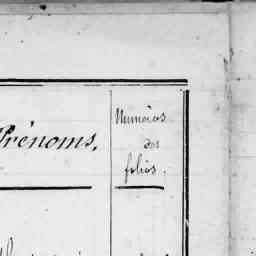 Prénoms.
Numéros
des
folios.